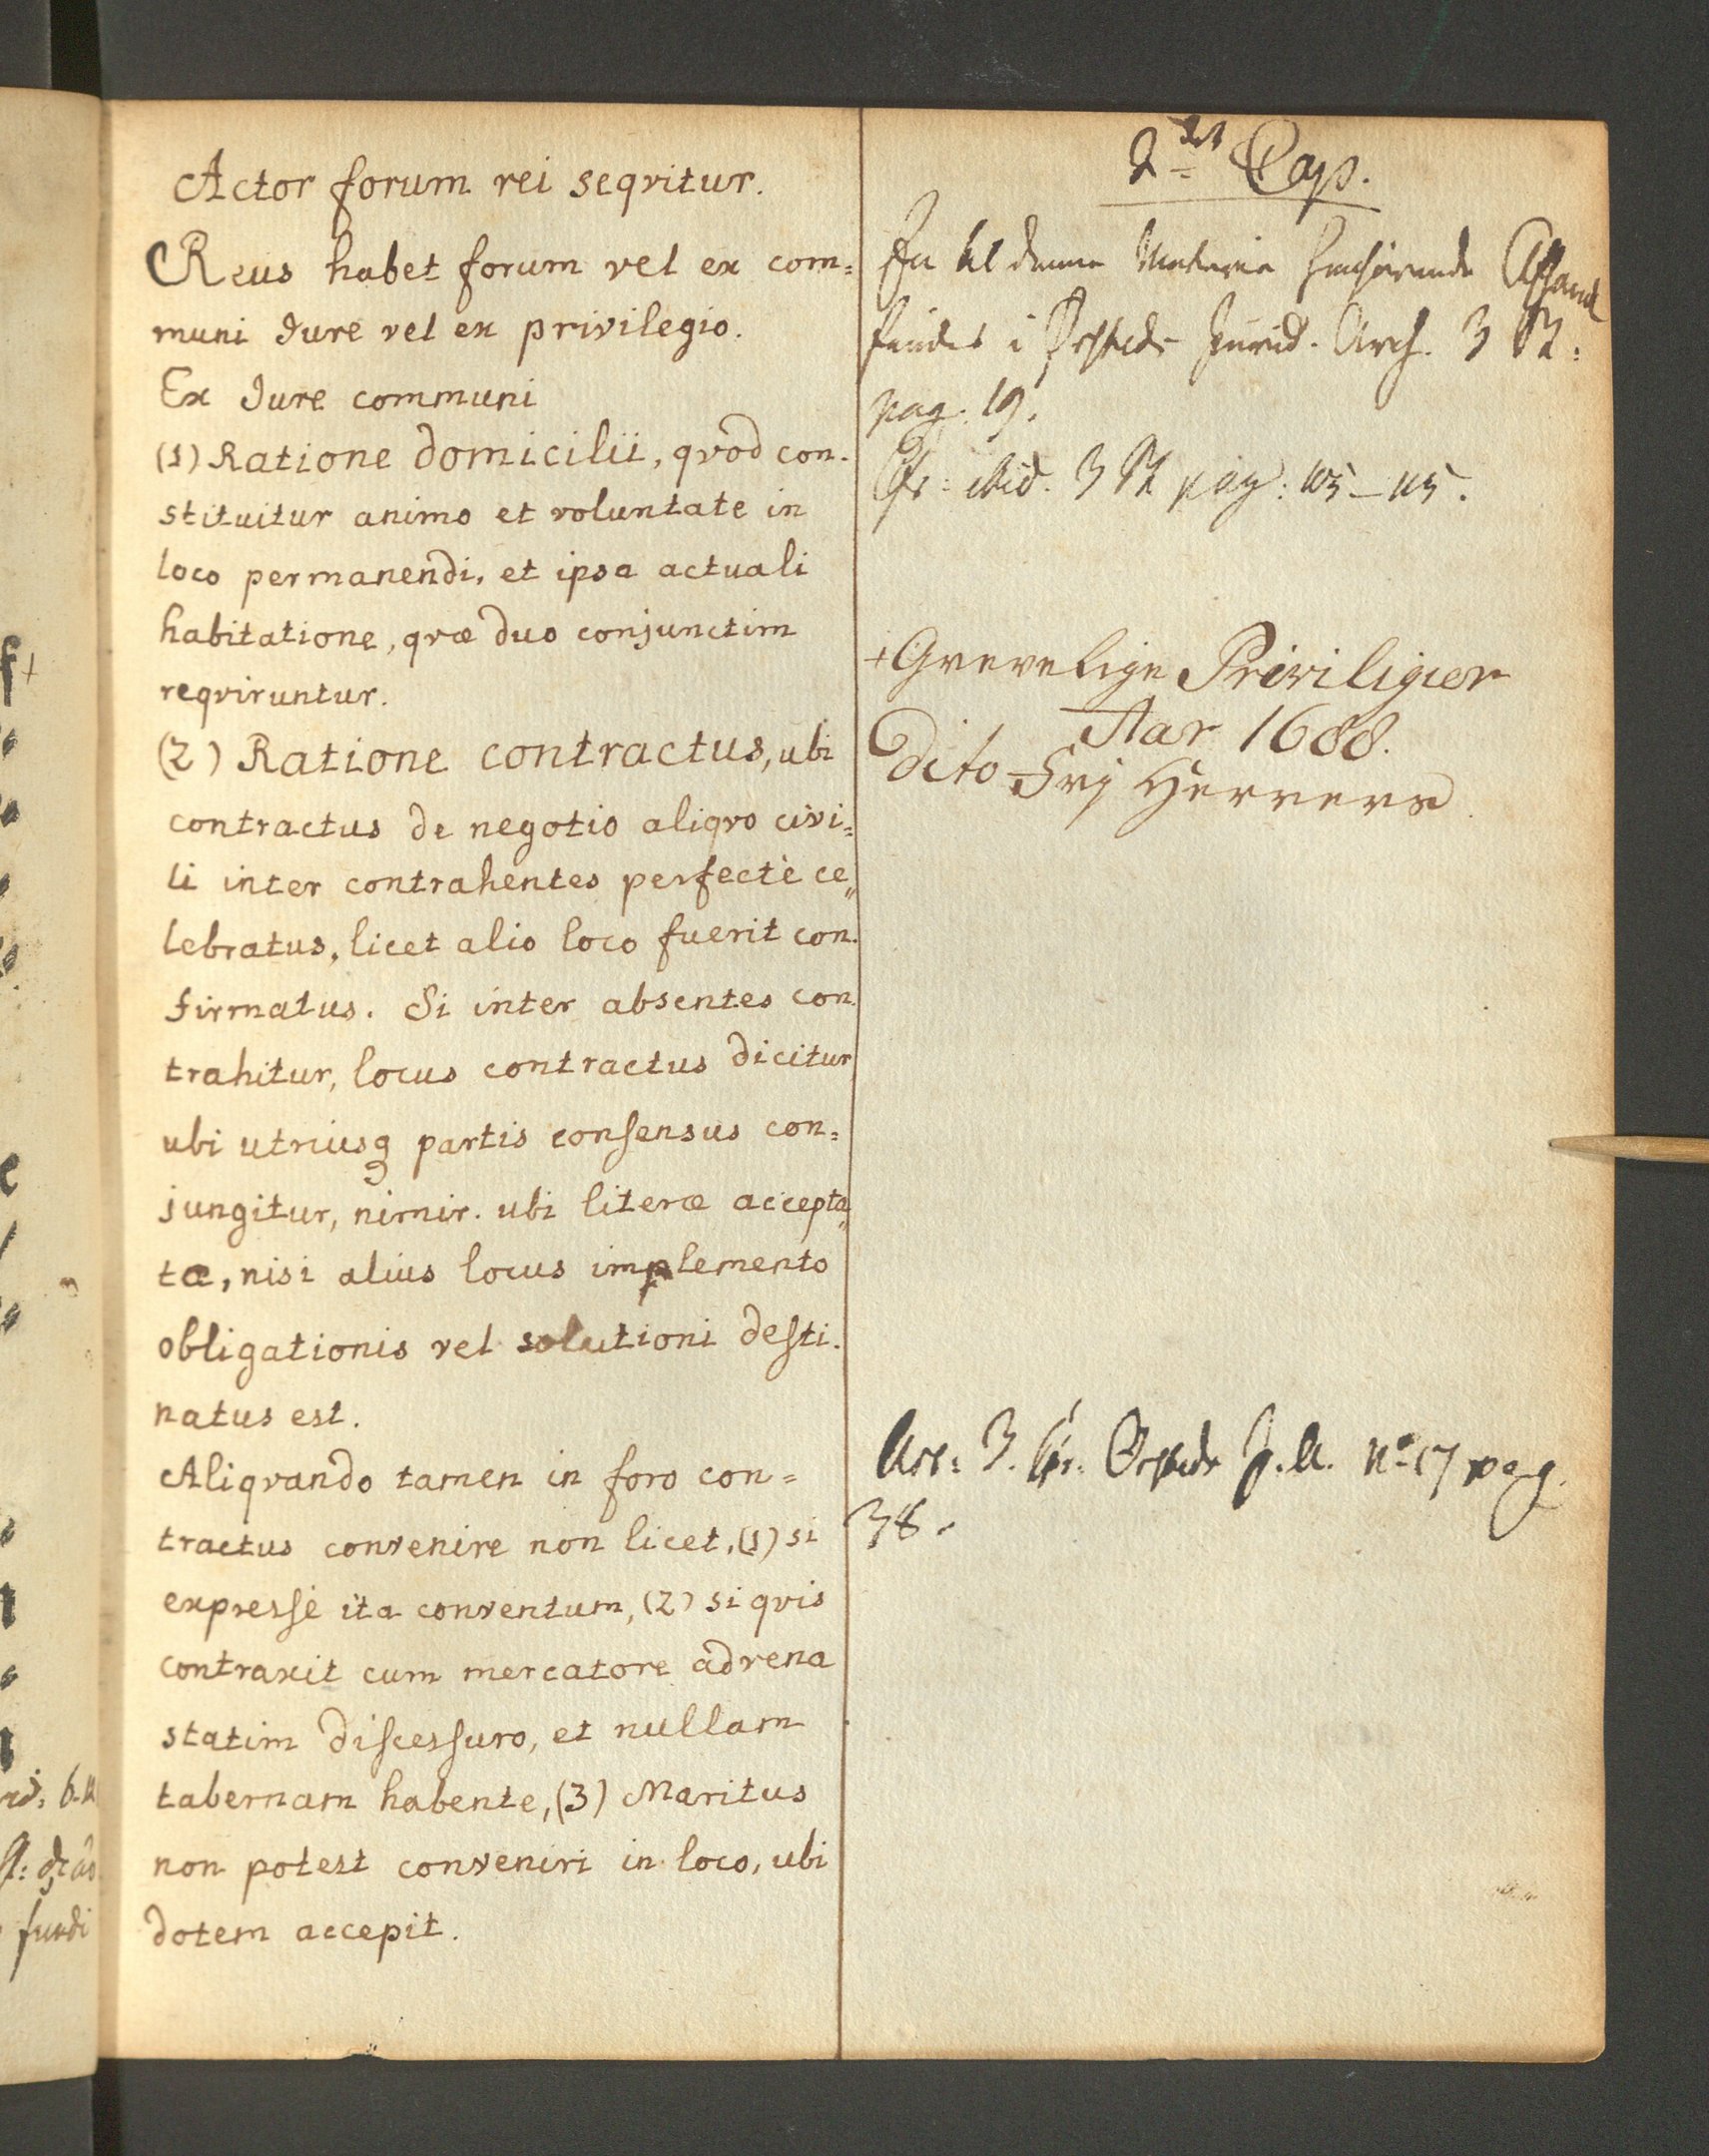 Actor forum rei seqvitur.
Reus habet forum vel ex com=
muni Jure vel ex privilegio.
Ex Jure communi
(1) Ratione domicilii, qvod con-
stituitur animo et voluntate in
loco permanendi, et ipsa actuali
habitatione, qvæ duo conjunctim
reqviruntur.
(2) Ratione contractus, ubi
contractus de negotio aliqvo civi=
li inter contrahentes perfectè ce„
lebratus, licet alio loco fuerit con-
firmatus. Si inter absentes con-
trahitur, locus contractus dicitur
ubi utriusq partis consensus con=
jungitur, nimir. ubi literæ accepta„
tæ, nisi alius locus implemento
obligationis vel solutioni desti-
natus est.
Aliqvando tamen in foro con=
tractus convenire non licet, (1) si
expressè ita conventum, (2) si qvis
contraxit cum mercatore advena
statim discessuro, et nullam
tabernam habente, (3) Maritus
non potest conveniri in loco, ubi
dotem accepit.
2det Cap.
En til denne Materie henhørende Afhandl
findes i Ørsteds Jurid. Arch. 3 St:
pag. 19.
Cfr: ibid. 3 St pag: 105-115.
+ Grevelige Priviligier
Aar 1688.
Dito Frj Herrers
3. Cfr. Ørsteds J. A. No 17 pag.
38.